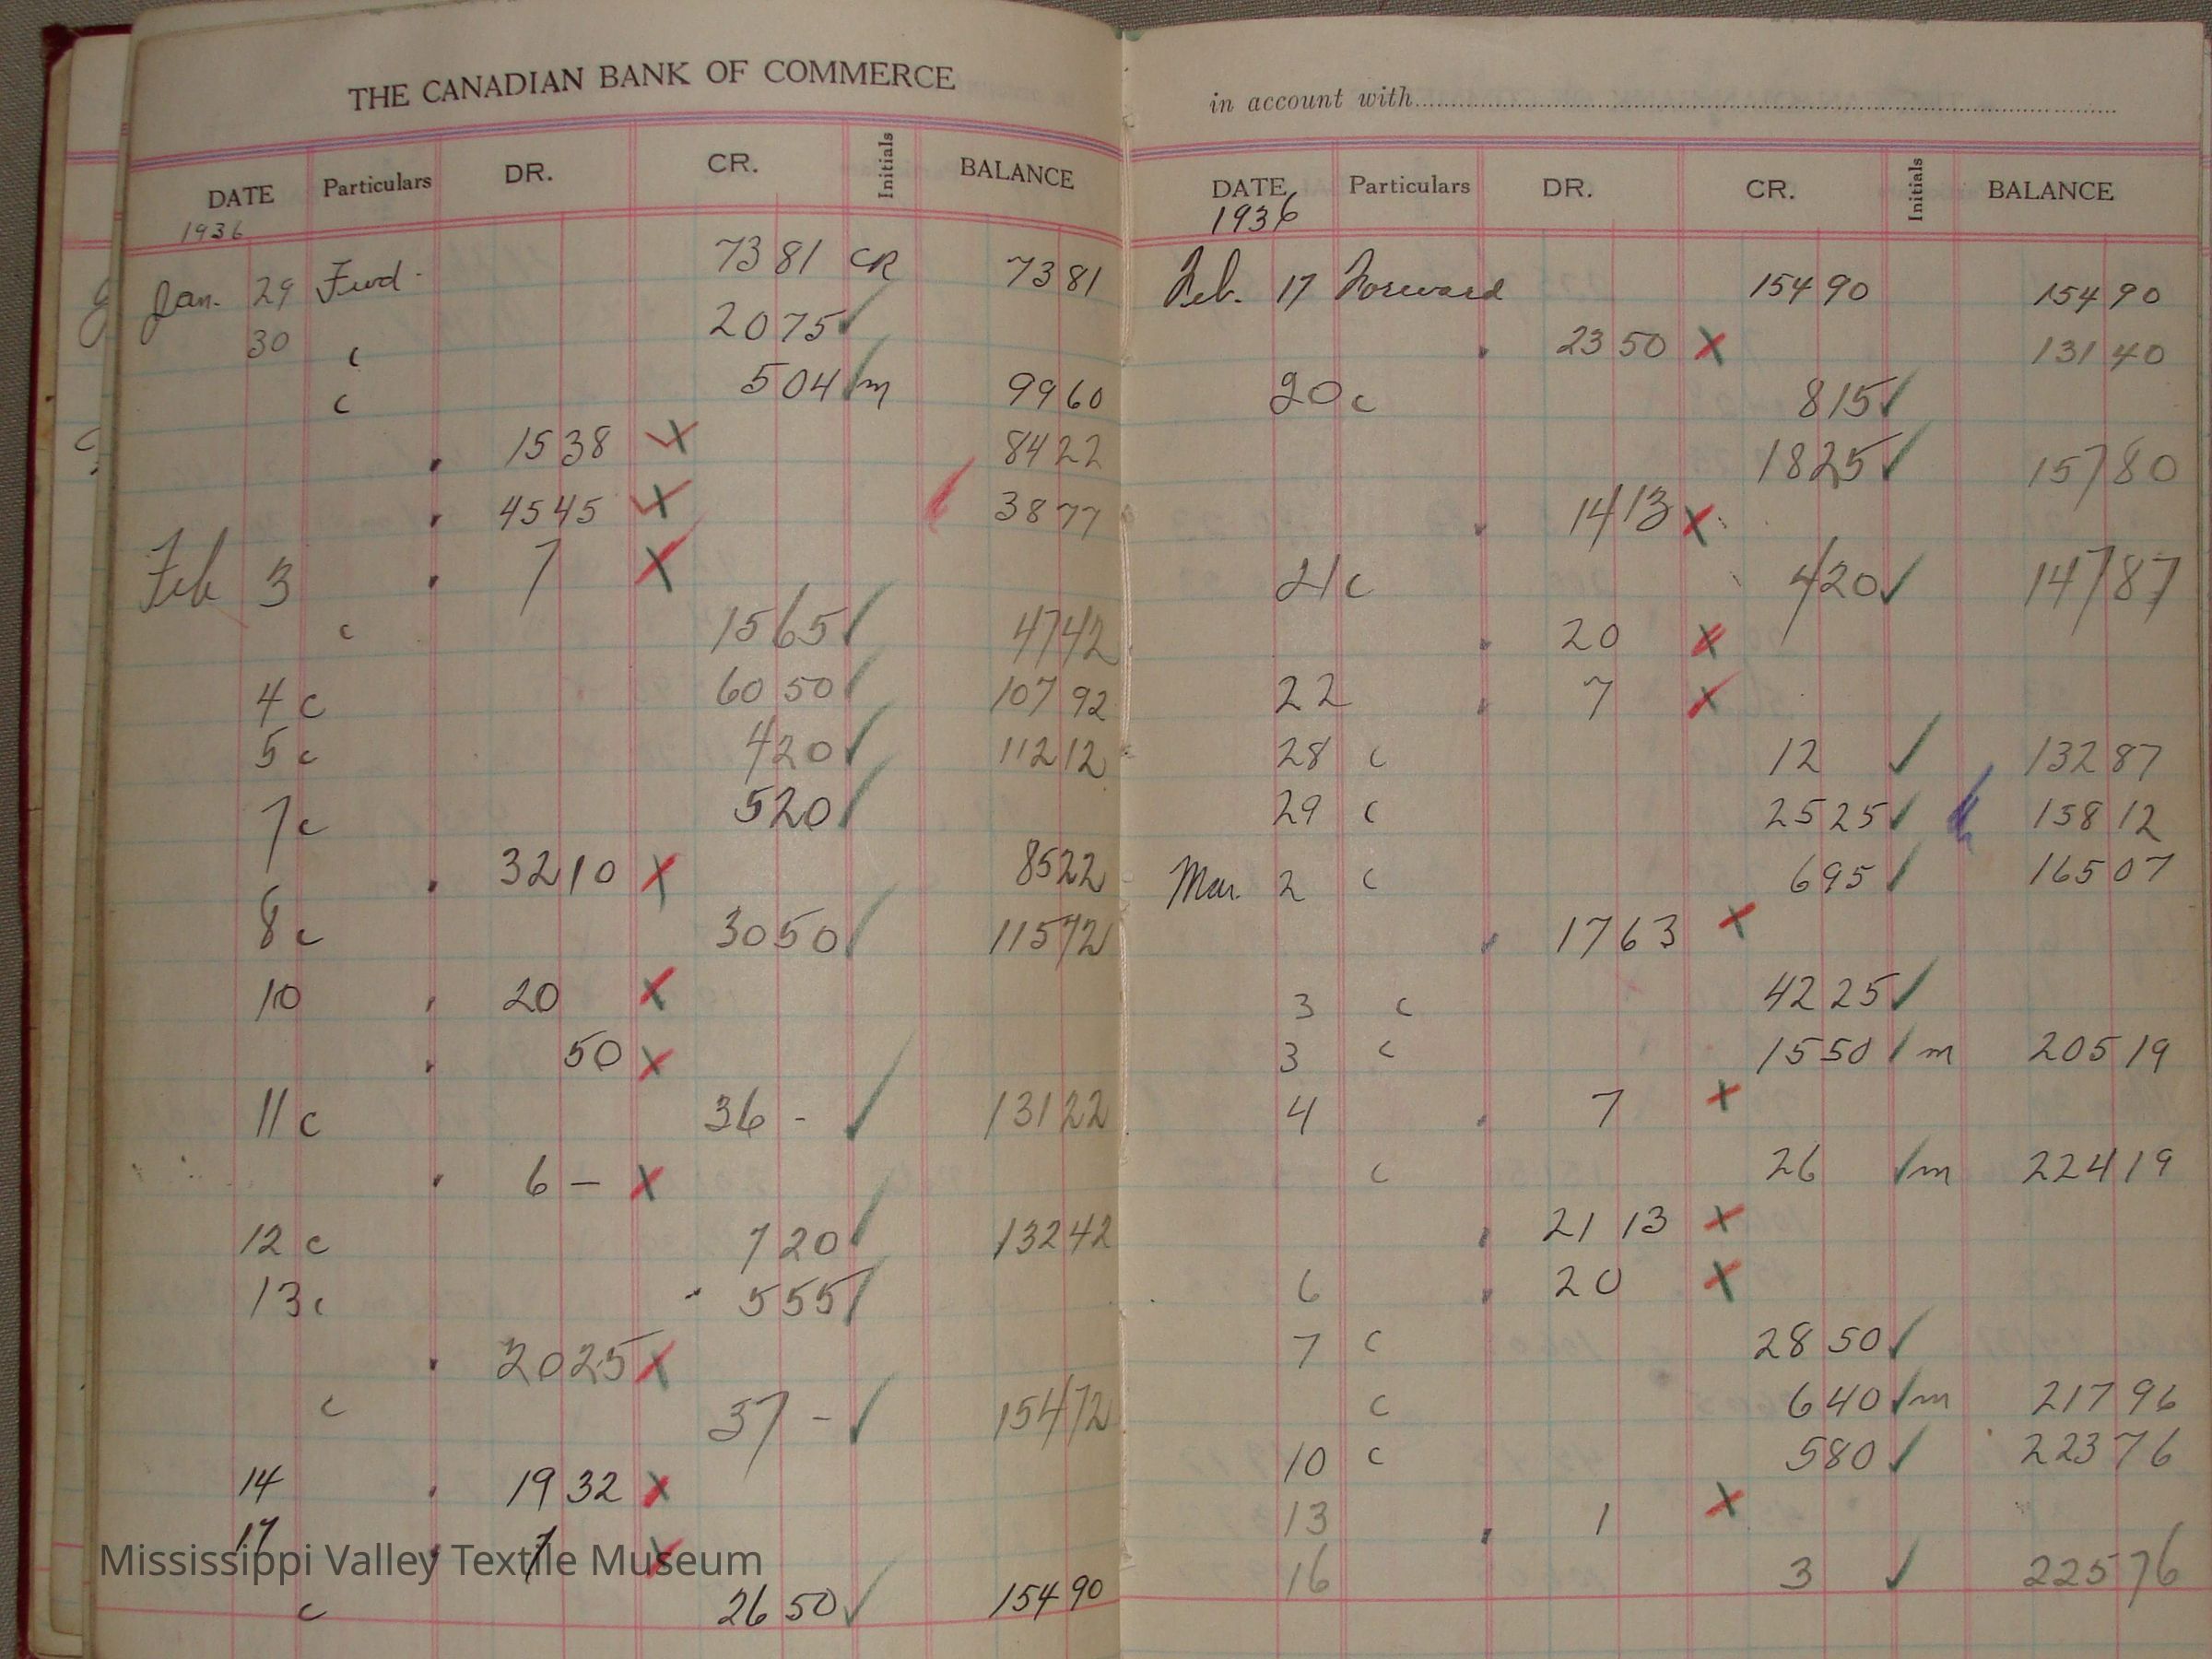 THE CANADIAN BANK OF COMMERCE
DATE Particulars DR. CR. Initials BALANCE
1936
Jan. 29 Fwd. 73 81 CR 73 81
30 c 20 75 ✓
c 5 04 ✓ m 99 60
15 38 X 84 22
45 45 X 38 77
Feb 3 7 X
c 15 65 ✓ 47 42
4 c 60 50 ✓ 107 92
5 c 4 20 ✓ 112 12
7 c 5 20 ✓
32 10 X 85 22
8 c 30 50 ✓ 115 72
10 20 X
50 X
11 c 36 - ✓ 131 22
6 — X
12 c 7 20 ✓ 132 42
13 c 5 55 ✓
20 25 X
c 37 - ✓ 154 72
14 19 32 X
17 7 X
c 26 50 ✓ 154 90
Mississippi Valley Textile Museum
in account with
DATE Particulars DR. CR. Initials BALANCE
1936
Feb. 17 Forward 154 90 154 90
23 50 X 131 40
20 c 8 15 ✓
18 25 ✓ 157 80
14 13 X
21 c 4 20 ✓ 147 87
20 X
22 7 X
28 c 12 ✓ 132 87
29 c 25 25 ✓ 158 12
Mar. 2 c 6 95 ✓ 165 07
17 63 X
3 c 42 25 ✓
3 c 15 50 ✓ m 205 19
4 7 X
c 26 ✓ m 224 19
21 13 X
6 20 X
7 c 28 50 ✓
c 6 40 ✓ m 217 96
10 c 5 80 ✓ 223 76
13 1 X
16 3 ✓ 225 76